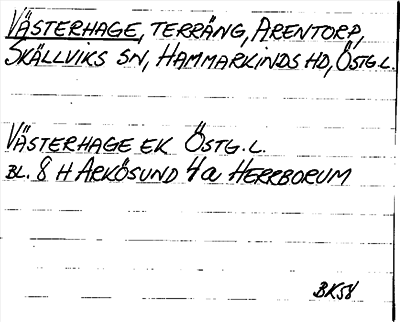 VÄSTERHAGE, TERRÄNG, ARENTORP,
SKÄLLVIKS SN, HAMMARKINDS HD, ÖSTG.L.
VÄSTERHAGE EK ÖSTG.L.
BL. 8 H ARKÖSUND 4a HERRBORUM
BK58